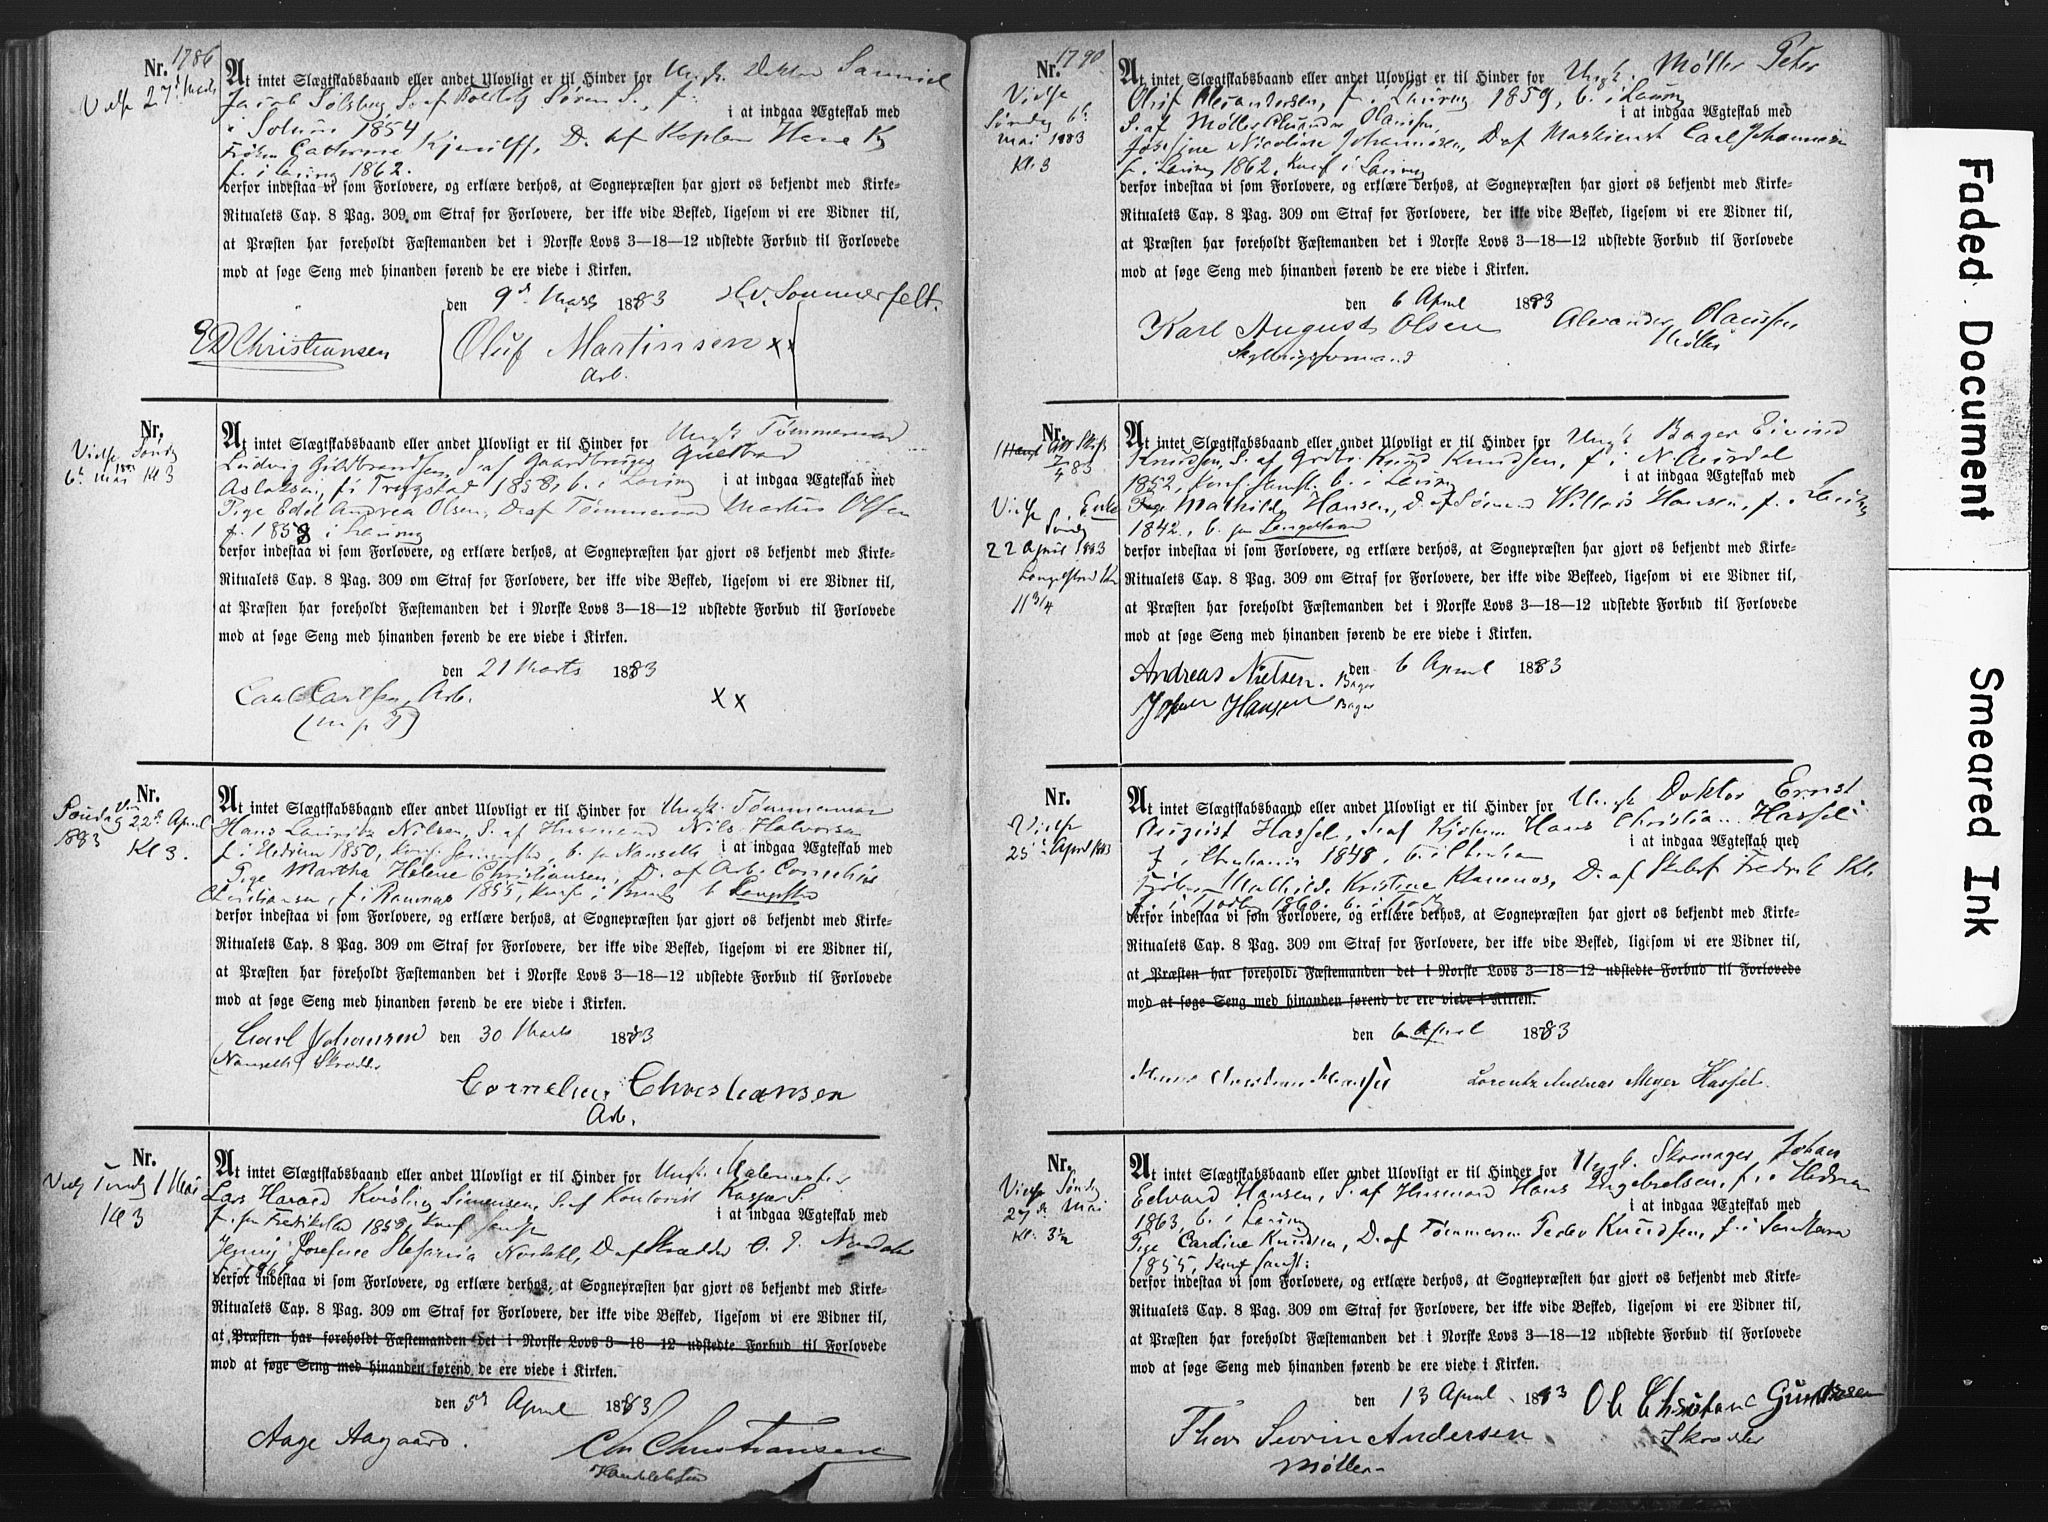 Nr. 1786
At intet Slægtskabsbaand eller andet Ulovligt er til Hinder for Ungk. Doktor Samuel
Vielse 27d Marts
Jacob Sølsberg S. af Søren S., f.
i Solum 1854 i at indgaa Ægteskab med
Frøken Cathrine Kjerulff, D. af Kaptein Hans K.
f. i Laurvig 1862.
derfor indestaa vi som Forlovere, og erklære derhos, at Sognepræsten har gjort os bekjendt med Kirke-
Ritualets Cap. 8 Pag. 309 om Straf for Forlovere, der ikke vide Besked, ligesom vi ere Vidner til,
at Præsten har foreholdt Fæstemanden det i Norske Lovs 3—18—12 udstedte Forbud til Forlovede
mod at søge Seng med hinanden førend de ere viede i Kirken.
den 9d Marts 1883 Sommerfelt.
Christiansen Oluf Martinsen xx
Arb.
Nr.
At intet Slægtskabsbaand eller andet Ulovligt er til Hinder for Ungk. Tømmermand
Vielse Søndag
6te Mai 1883 Kl 3
Ludvig Guldbrandsen, S. af Gaardbruger Gulbrand
Aslaksen, f. i Trygstad 1858, b. i Laurvig i at indgaa Ægteskab med
Pige Edel Andrea Olsen, D. af Tømmermand Martin Olsen
f. 1858 i Laurvig
derfor indestaa vi som Forlovere, og erklære derhos, at Sognepræsten har gjort os bekjendt med Kirke-
Ritualets Cap. 8 Pag. 309 om Straf for Forlovere, der ikke vide Besked, ligesom vi ere Vidner til,
at Præsten har foreholdt Fæstemanden det i Norske Lovs 3—18—12 udstedte Forbud til Forlovede
mod at søge Seng med hinanden førend de ere viede i Kirken.
den 21 Marts 1883
Carl Carlsen, Arb. xx
(m p P)
Nr.
At intet Slægtskabsbaand eller andet Ulovligt er til Hinder for Ungk. Tømmermand
Søndag 22de April
1883 Kl 3.
Hans Lauritz Nilsen, S. af Husmand Nils Halvorsen
f. i Hedrum 1850, konf. sammesteds, b. paa Nanset i at indgaa Ægteskab med
Pige Martha Helene Christiansen, D. af Arb. Cornelius
Christiansen, f. i Ramnæs 1855, konf. i b. Langestrand
derfor indestaa vi som Forlovere, og erklære derhos, at Sognepræsten har gjort os bekjendt med Kirke-
Ritualets Cap. 8 Pag. 309 om Straf for Forlovere, der ikke vide Besked, ligesom vi ere Vidner til,
at Præsten har foreholdt Fæstemanden det i Norske Lovs 3—18—12 udstedte Forbud til Forlovede
mod at søge Seng med hinanden førend de ere viede i Kirken.
Carl Johansen den 30 Marts 1883
Cornelius Christiansen
Arb.
Nr.
At intet Slægtskabsbaand eller andet Ulovligt er til Hinder for Ungk. Malermester
1 Mai
Kl 3
Lars Harald Simonsen, S. af Kontorist Kasper S.
f. paa Fredrikstad 1858, konf. i at indgaa Ægteskab med
Jenny Josefine Stefania Nordahl, D. af Skrædder
f. 1861
derfor indestaa vi som Forlovere, og erklære derhos, at Sognepræsten har gjort os bekjendt med Kirke-
Ritualets Cap. 8 Pag. 309 om Straf for Forlovere, der ikke vide Besked, ligesom vi ere Vidner til,
at Præsten har foreholdt Fæstemanden det i Norske Lovs 3—18—12 udstedte Forbud til Forlovede
mod at søge Seng med hinanden førend de ere viede i Kirken.
den 5d April 1883
Aage Aagaard. Chr Christiansen
Nr. 1790
At intet Slægtskabsbaand eller andet Ulovligt er til Hinder for Ungk. Møller Peter
Vielse
Søndag 6te
Mai 1883
Kl 3
Oluf Alexandersen, f. i Laurvig 1859, b. i Laurvig
S. af Møller Alexander Olaussen, i at indgaa Ægteskab med
Josefine Nicoline Johannesen, D. af Maskinist Carl Johannesen
f. i Laurvig 1862, konf. i Laurvig
derfor indestaa vi som Forlovere, og erklære derhos, at Sognepræsten har gjort os bekjendt med Kirke-
Ritualets Cap. 8 Pag. 309 om Straf for Forlovere, der ikke vide Besked, ligesom vi ere Vidner til,
at Præsten har foreholdt Fæstemanden det i Norske Lovs 3—18—12 udstedte Forbud til Forlovede
mod at søge Seng med hinanden førend de ere viede i Kirken.
den 6 April 1883
Karl August Olsen Alexander Olaussen
Møller
Nr.
At intet Slægtskabsbaand eller andet Ulovligt er til Hinder for Ungk. Bager Eivind
Vielse
Søndag
22 April 1883
11 3/4
Knudsen, S. af Grdbr. Knud Knudsen, f. i N. Aurdal
1852, b. i Laurvig i at indgaa Ægteskab med
Pige Mathilde Hansen, D. af Sømand Hansen, f. i Laurvig
1842, b. paa Langestrand
derfor indestaa vi som Forlovere, og erklære derhos, at Sognepræsten har gjort os bekjendt med Kirke-
Ritualets Cap. 8 Pag. 309 om Straf for Forlovere, der ikke vide Beskeed, ligesom vi ere Vidner til,
at Præsten har foreholdt Fæstemanden det i Norske Lovs 3—18—12 udstedte Forbud til Forlovede
mod at søge Seng med hinanden førend de ere viede i Kirken.
Andreas Nielsen. Bager den 6 April 1883
Hansen Bager
Nr.
At intet Slægtskabsbaand eller andet Ulovligt er til Hinder for Ungk. Doktor Ernst
Vielse
25de April 1883
August Hassel, S. af Kjøbm. Hans Christian Hassel
f. i Christiania 1848, i at indgaa Ægteskab med
Frøken Mathilde Kristine D. af Fredrik
1860.
derfor indestaa vi som Forlovere, og erklære derhos, at Sognepræsten har gjort os bekjendt med Kirke-
Ritualets Cap. 8 Pag. 309 om Straf for Forlovere, der ikke vide Besked, ligesom vi ere Vidner til,
at Præsten har foreholdt Fæstemanden det i Norske Lovs 3—18—12 udstedte Forbud til Forlovede
mod at søge Seng med hinanden førend de ere viede i Kirken.
den 6 April 1883
Lorentz Andreas Meyer Hassel.
Nr.
At intet Slægtskabsbaand eller andet Ulovligt er til Hinder for Ungk. Skomager Johan
Vielse Søndag
27de Mai
Kl. 3½
Edvard Hansen, S. af Husmand Hans Ingebretsen, f. i Hedrum
1863, b. i Laurvig i at indgaa Ægteskab med
Pige Cardine Knudsen, D. af Tømmermand Peder Knudsen, f. i
1855, konf.
derfor indestaa vi som Forlovere, og erklære derhos, at Sognepræsten har gjort os bekjendt med Kirke-
Ritualets Cap. 8 Pag. 309 om Straf for Forlovere, der ikke vide Besked, ligesom vi ere Vidner til,
at Præsten har foreholdt Fæstemanden det i Norske Lovs 3—18—12 udstedte Forbud til Forlovede
mod at søge Seng med hinanden førend de ere viede i Kirken.
den 13 April 1883 Ole Christian Gundersen
Thor Severin Andersen Skrædder
Møller
Faded Document
Smeared Ink